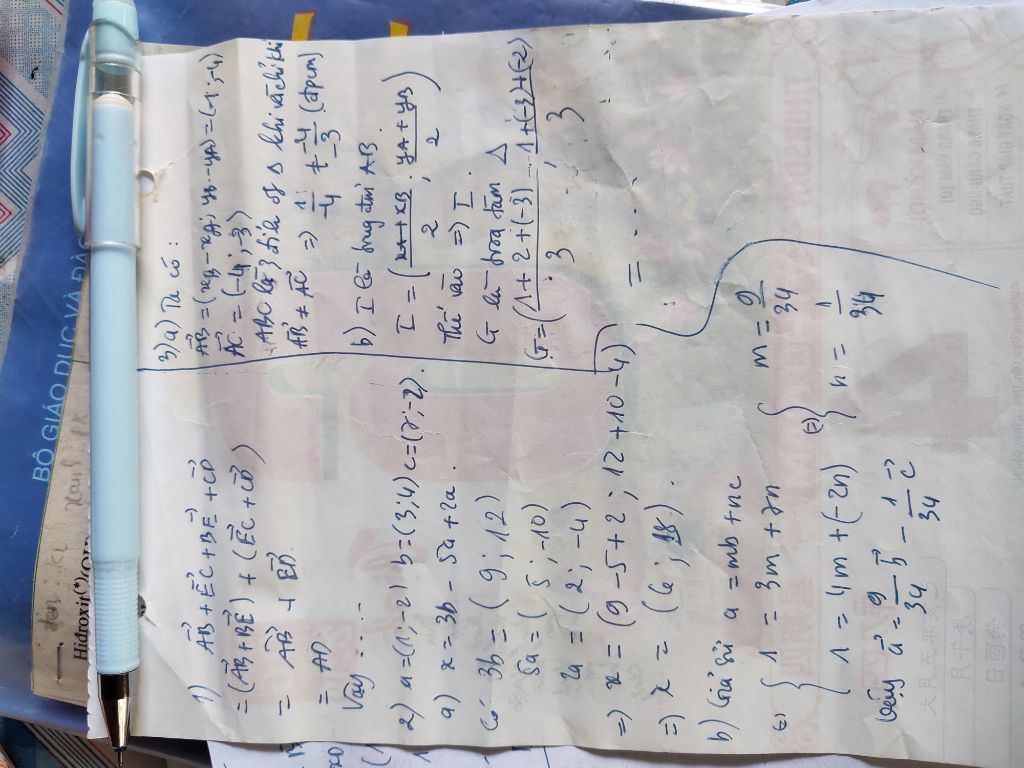 BỘ GIÁO DỤC VÀ ĐÀ
Hidroxit(*)
1) AB + EC + BE + CD
= (AB + BE) + (EC + CD)
= AE + ED
= AD
Vậy ....
2) a = (1; -2) b = (3; 4) c = (7; -2).
a) x = 3b - 5a + 2a.
Có 3b = (9; 12)
5a = (5; -10)
2a = (2; -4)
=> x = (9 - 5 + 2; 12 + 10 - 4)
=> x = (6; 18).
b) Giả sử a = mb + nc
(=) { 1 = 3m + 7n
1 = 4m + (-2n)
(=) { m = 9/34
n = 1/34
Vậy a = 9/34 b - 1/34 c
3) a) Ta có:
AB = (xB - xA; yB - yA) = (-1; -4)
AC = (-4; -3)
ABC là 3 đỉnh of Δ khi và chỉ khi
AB ≠ AC => 1/-4 ≠ -4/-3 (đpcm)
b) I là trung điểm AB
I = (xA + xB / 2; yA + yB / 2)
Thế vào => I.
G là trọng tâm Δ
G = (1 + 2 + (-3) / 3; 1 + (-3) + (-2) / 3
= ...